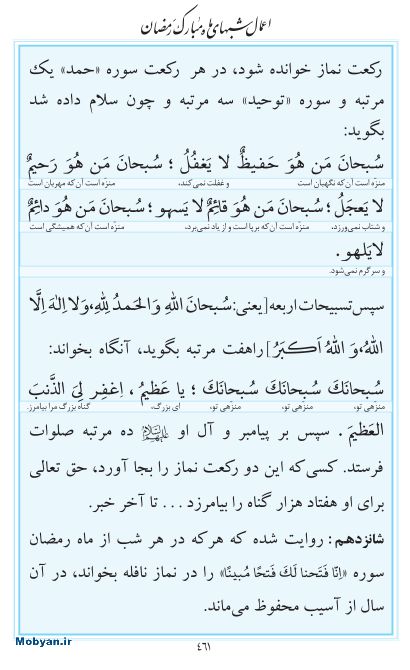 اعمال شبهای ماه مبارک رمضان
رکعت نماز خوانده شود، در هر رکعت سوره «حمد» یک
مرتبه و سوره «توحید» سه مرتبه و چون سلام داده شد
بگوید:
سُبحانَ مَن هُوَ حَفیظٌ لا یَغفُلُ ؛ سُبحانَ مَن هُوَ رَحیمٌ
منزّه است آن که نگهبان است و غفلت نمی‌کند، منزّه است آن که مهربان است
لا یَعجَلُ ؛ سُبحانَ مَن هُوَ قائِمٌ لا یَسهو ؛ سُبحانَ مَن هُوَ دائِمٌ
و شتاب نمی‌ورزد، منزّه است آن که برپا است و از یاد نمی‌برد، منزّه است آن که همیشگی است
لا یَلهو .
و سرگرم نمی‌شود.
سپس تسبیحات اربعه [یعنی: سُبحانَ اللهِ وَ الحَمدُ لِلّهِ، وَ لا اِلهَ اِلَّا
اللهُ، وَ اللهُ اَکبَرُ] را هفت مرتبه بگوید، آنگاه بخواند:
سُبحانَكَ سُبحانَكَ سُبحانَكَ ؛ یا عَظیمُ ، اِغفِر لِیَ الذَّنبَ
منزهی تو، منزهی تو، منزهی تو، ای بزرگ، گناه بزرگ مرا بیامرز.
العَظیمَ . سپس بر پیامبر و آل او علیهم‌السلام ده مرتبه صلوات
فرستد. کسی‌که این دو رکعت نماز را بجا آورد، حق تعالی
برای او هفتاد هزار گناه را بیامرزد ... تا آخر خبر.
شانزدهم: روایت شده که هرکه در هر شب از ماه رمضان
سوره «اِنّا فَتَحنا لَكَ فَتحًا مُبینًا» را در نماز نافله بخواند، در آن
سال از آسیب محفوظ می‌ماند.
Mobyan.ir
٤٦١